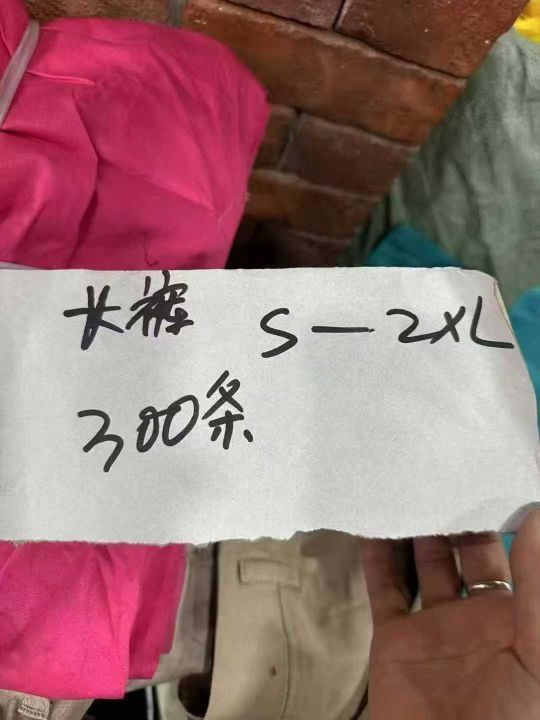 长裤 S—2XL
300条